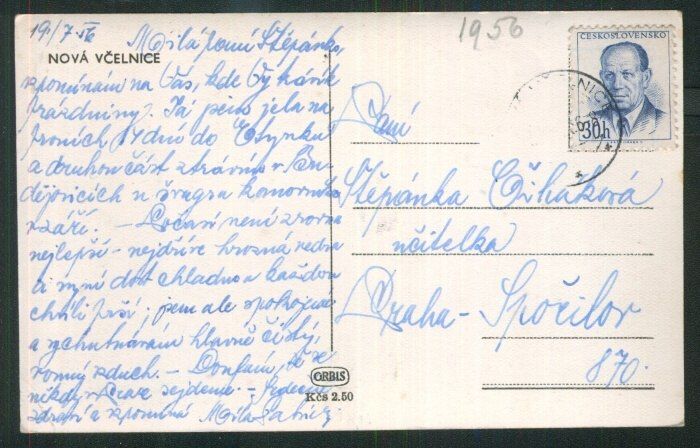 19/7 56
1956
NOVÁ VČELNICE
Milá paní Štěpánko,
vzpomínám na Vás, kde Vy trávíte
prázdniny. Já jsem jela na
prvních 14 dní do Týnku
a druhou část strávím v Bu-
dějovicích u švagra
v září. – Počasí není zrovna
nejlepší – nejdříve hrozná vedra
a nyní dost chladno a každou
chvíli prší; jsem ale spokojená
a vychutnávám hlavně čistý,
vonný vzduch. – Doufám, že se
někdy v Praze sejdeme. – Srdečně
zdraví a vzpomíná Míla
ČESKOSLOVENSKO
30h
Paní
Štěpánka Cižňáková
učitelka
Praha - Spořilov
870.
ORBIS
Kčs 2.50